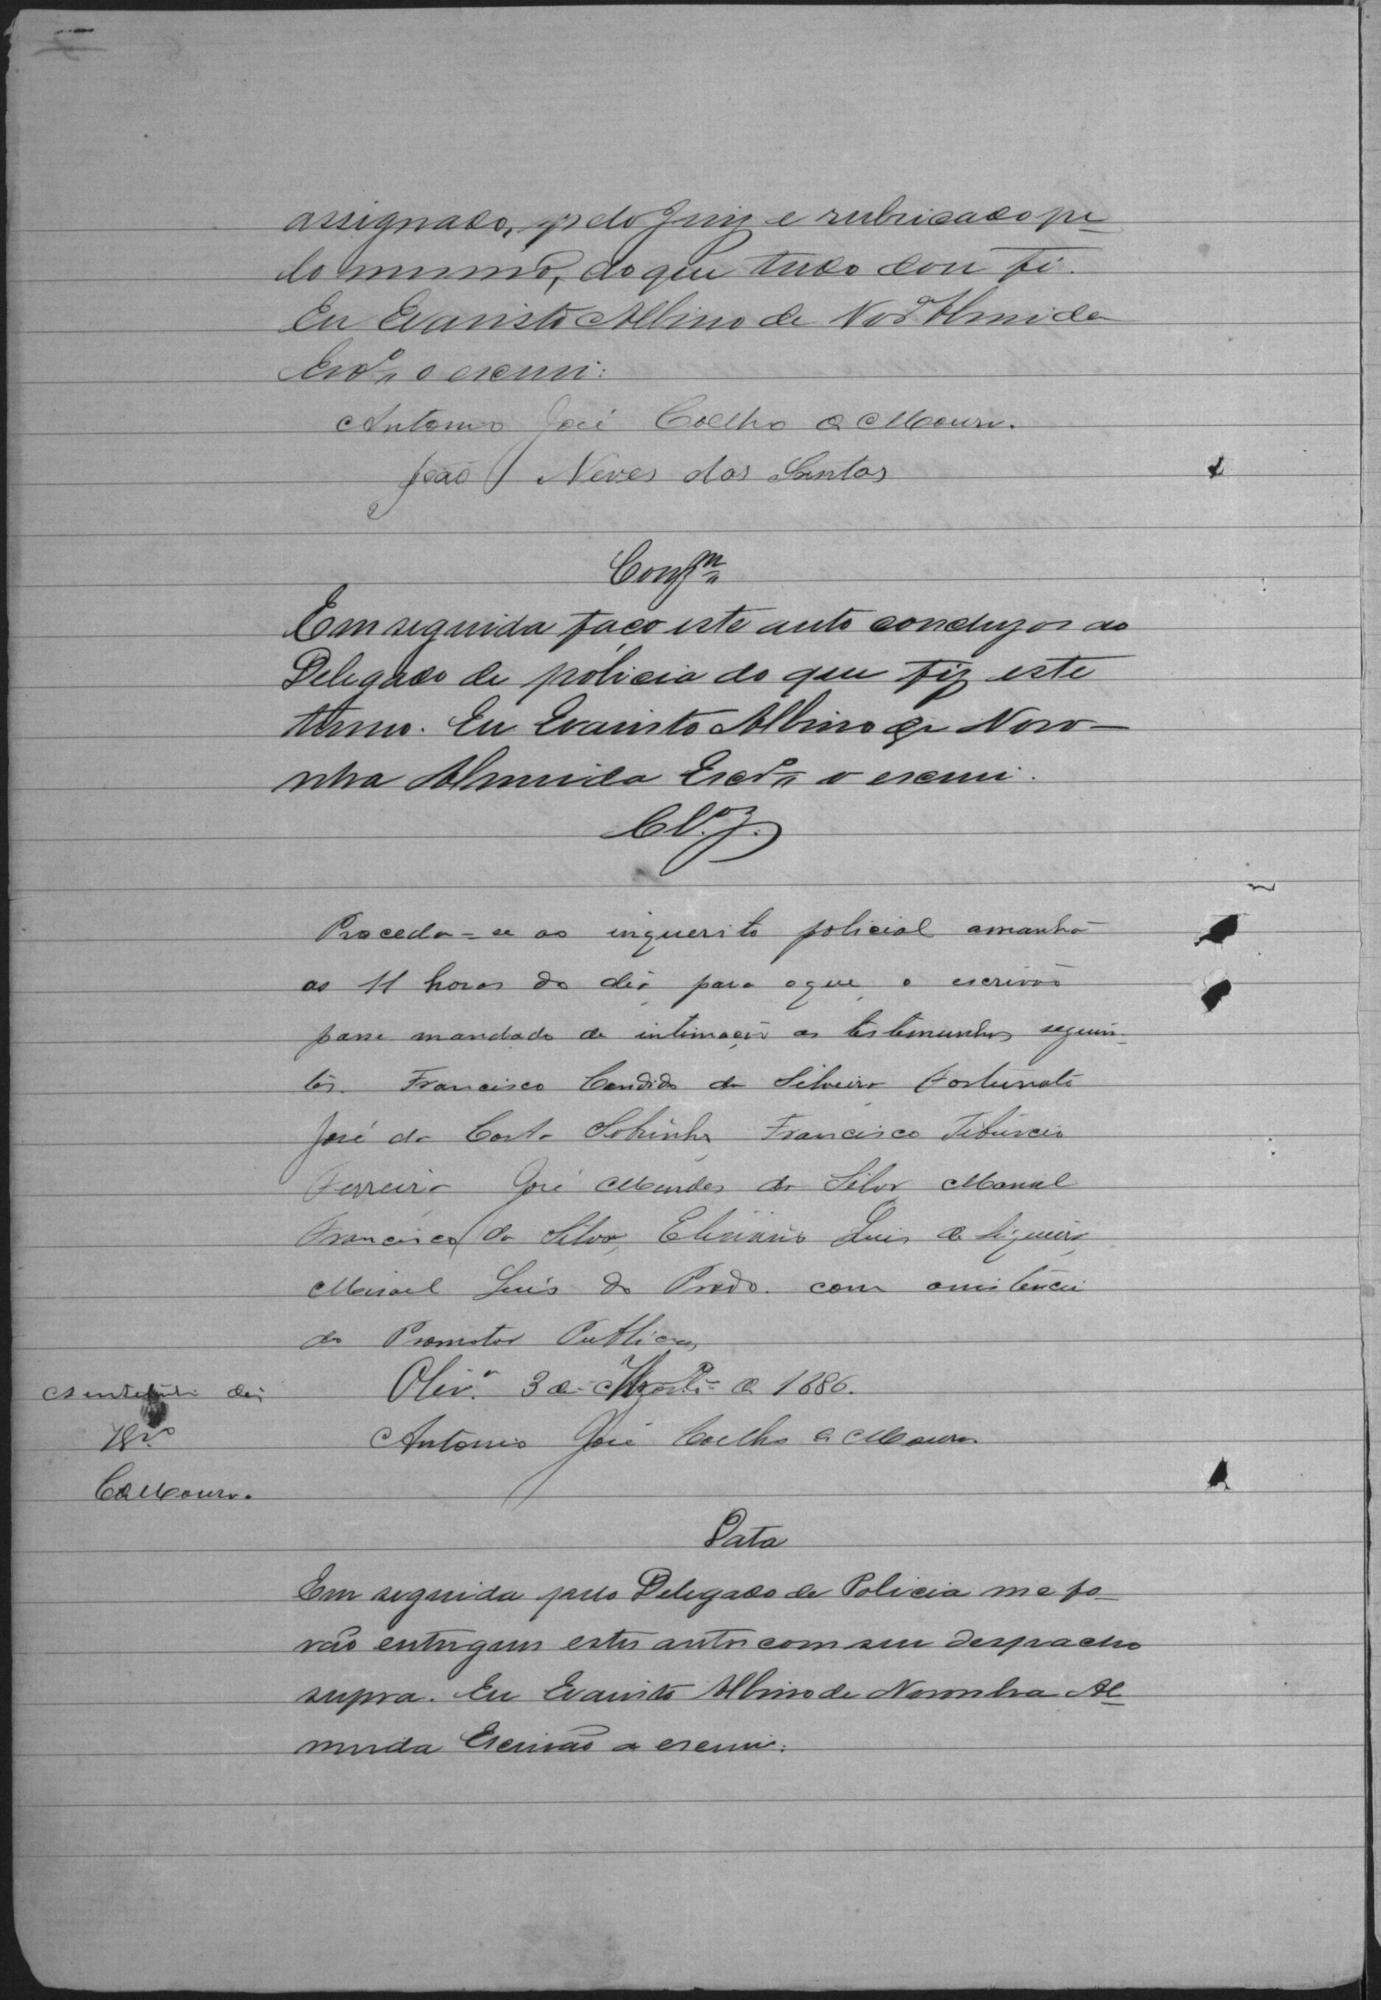 assignado, pelo Juiz e rubricado pe-
lo mesmo, do que tudo dou fé.
Eu Evaristo Albino de Nor.ª Almeida
Escr.m o escrevi:
Antonio José Coelho de Moura.
João Neves dos Santos
Em seguida faço este auto concluzos ao
Delegado de policia do que fiz este
termo. Eu Evaristo Albino de Noro-
nha Almeida Escr.m o escrevi.
Cl.os
Proceda-se ao inquerito policial amanhã
as 11 horas do dia, para o que, o escrivão
passe mandado de intimação as testemunhas seguin-
tes. Francisco Candido da Silveira, Fortunato
José da Costa Sobinho, Francisco Tiburcio
Ferreira José Mendes da Silva, Manoel
Francisco da Silva, Luis de Siqueira,
Misael Luis do Prado. com assistencia
do Promotor Publico,
Oliv.ª 3 de Agosto de 1886.
Antonio José Coelho de Moura
C de Moura.
Data
Em seguida pelo Delegado de Policia me fo-
rão entregues estes autos com seu despacho
supra. Eu Evaristo Albino de Noronha Al-
meida Escrivão o escrevi.